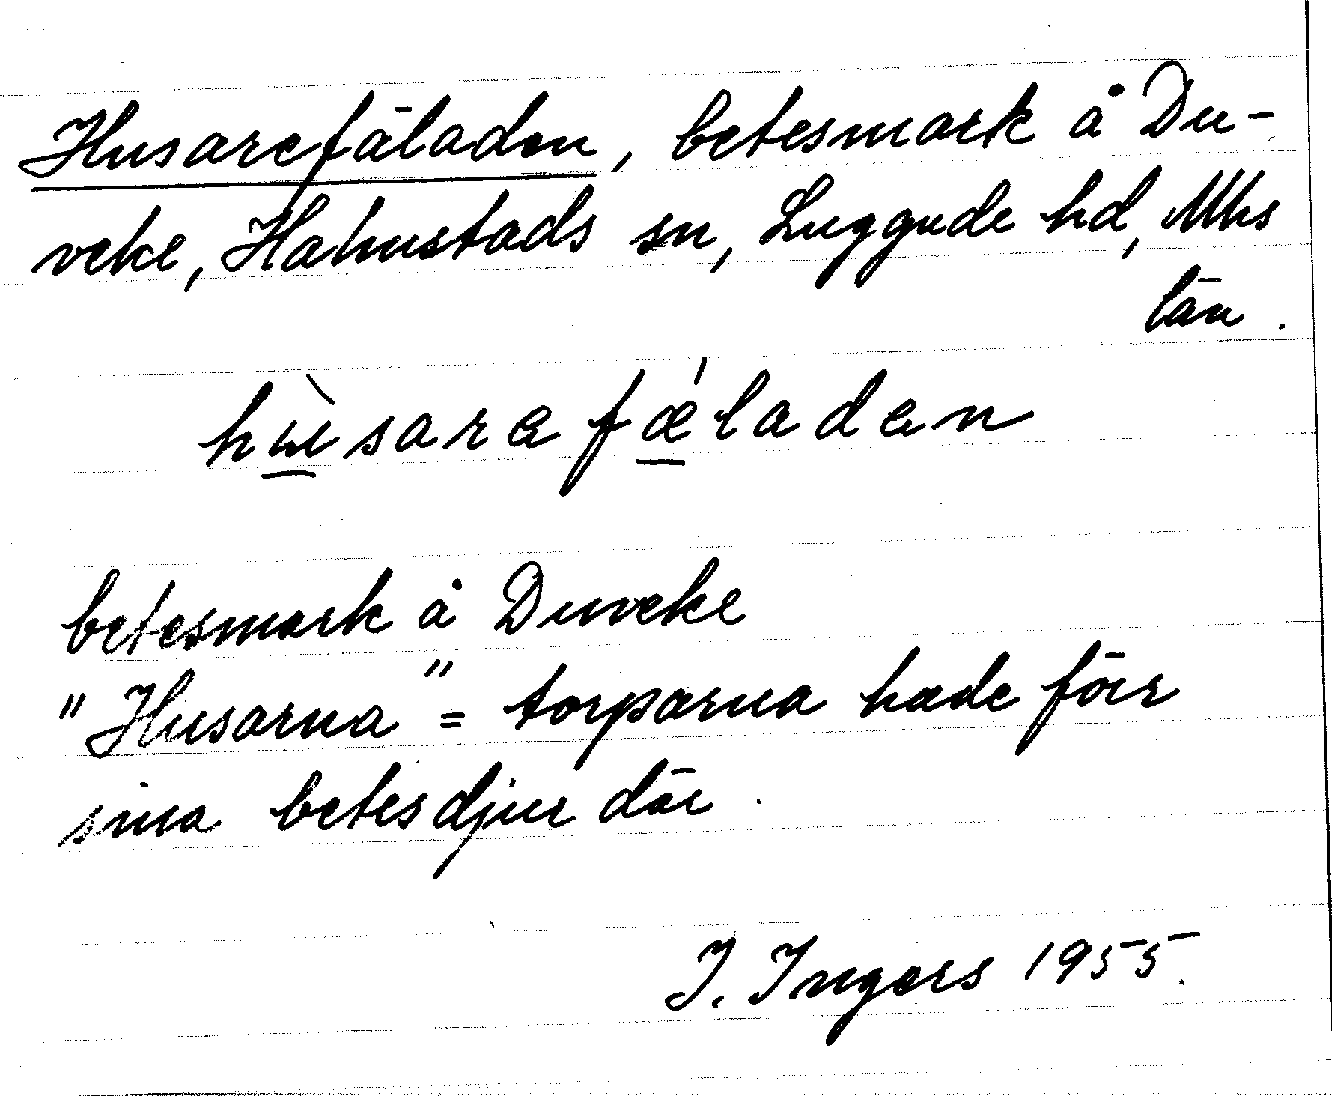 Husarefäladen, betesmark å Du-
veke, Halmstads sn, Luggude hd, Mhs
län.
hùsarefǽladen
betesmark å Duveke
"Husarna" = torparna hade förr
sina betesdjur där.
I. Ingers 1955.